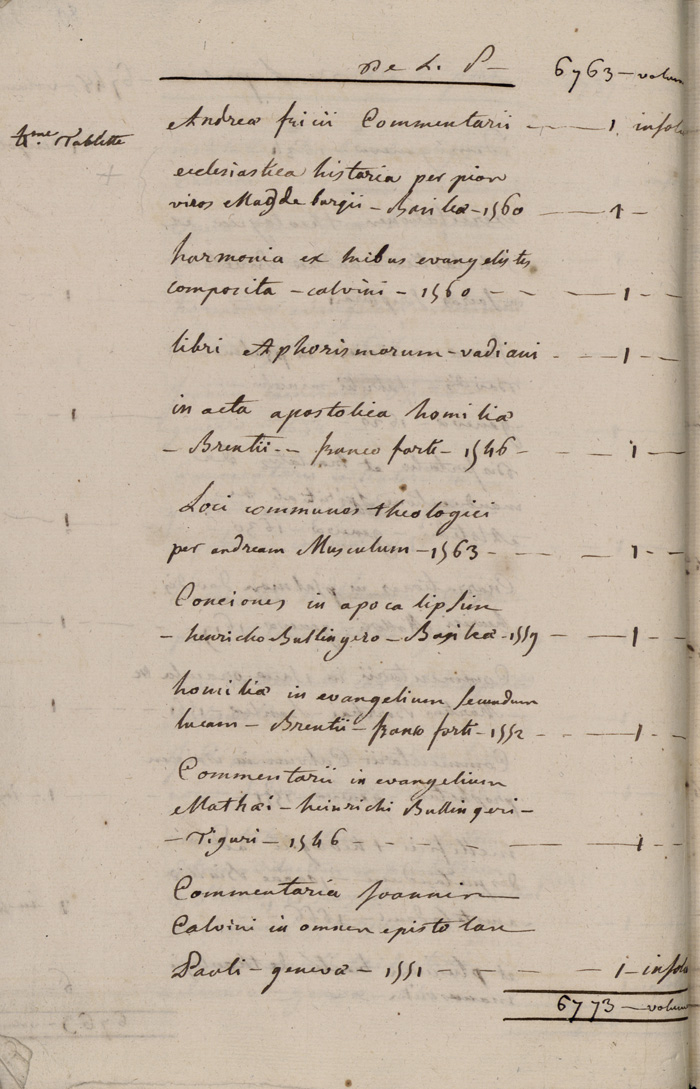 De L. P — 6763 — volum
4.me Tablette
Andreæ fricii Commentarii - — 1. infol
ecclesiastica historia per pios
viros Magdeburgii — Basileæ — 1560 — 1 -
harmonia ex tribus evangelistis
composita — calvini — 1560 - - — 1 - -
libri Aphorismorum - vadiani - — 1 - -
in acta apostolica homiliæ
— Brentii - - francoforti — 1546 - — 1 -
Loci communes theologici
per andream Musculum — 1563 — - - — 1 - -
Conciones in apocalipsim
— henricho Bullingero — Basileæ - 1559 - — 1 -
homiliæ in evangelium secundum
lucam — Brentii — francoforti — 1552 - - — 1 - -
Commentarii in evangelium
Mathæi — heinrichi Bullingeri —
— Tiguri — 1546 - - - - — 1 - -
Commentaria Joannis
Calvini in omnes epistolas
Pauli — genevæ — 1551 - - - — 1 - infol
6773 — volum